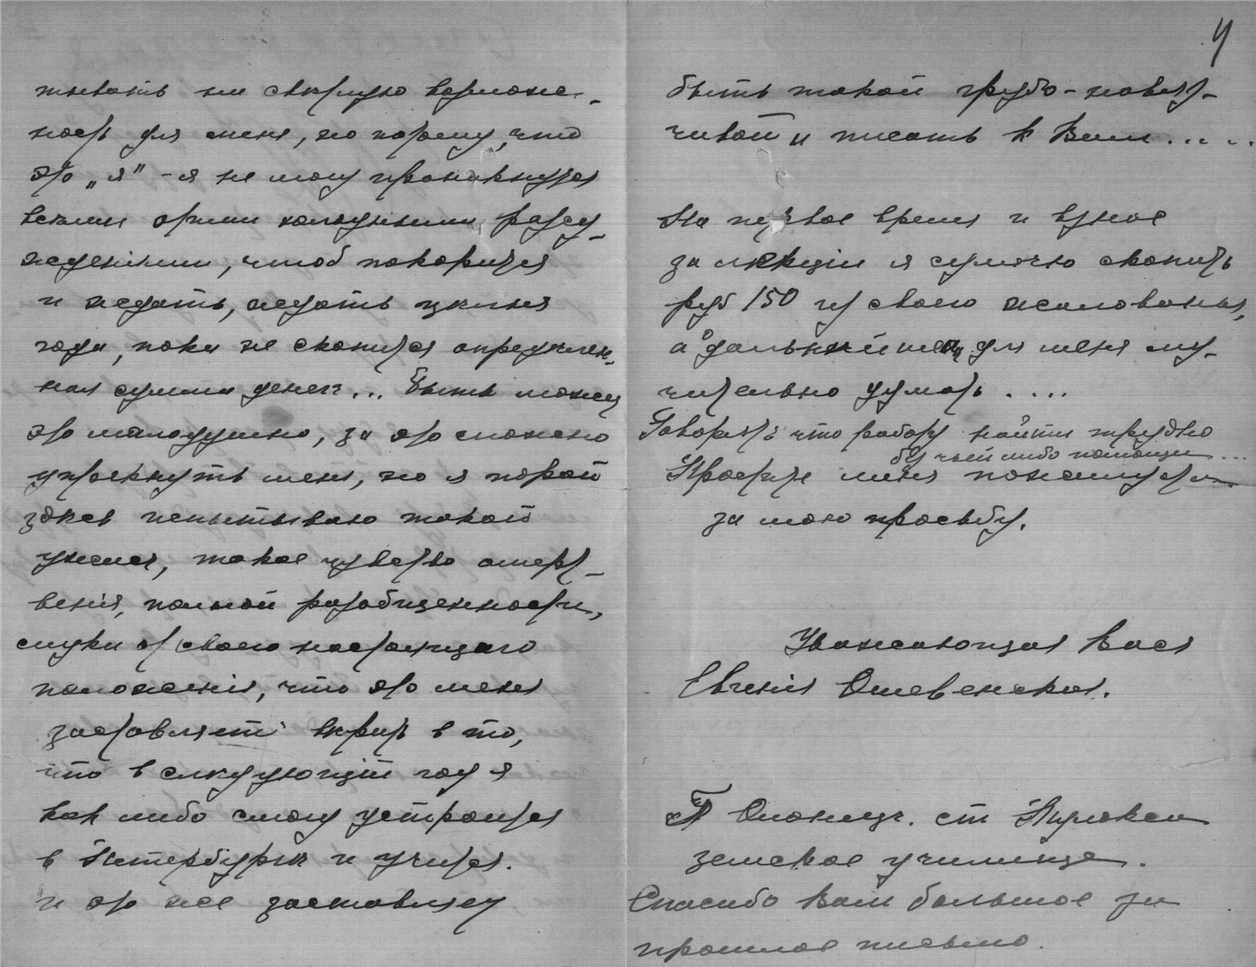 тывать на светлую возможе-
ность для меня, но потому, что
это „я" - я не могу проникнуться
всеми этими холодными рассу-
жденiями, чтоб покориться
и ждать, ждать цѣлые
годы, пока не скопится опредѣлен-
ная сумма денегъ... Быть может
это малодушно, за это можно
упрекнуть меня, но я порой
здѣсь испытываю такой
ужас, такое чувство омерт-
венiя, полной разобщенности,
скуки от своего настоящаго
положенiя, что это меня
заставляетъ вѣрить в то,
что в слѣдующiй год я
как либо смогу устроиться
в Петербургѣ и учиться.
и это же заставляет
4
быть такой грубо-навяз-
чивой и писать к Вам.....
На первое время и взнос
за лекцiи я сумѣю скопить
руб 150 из своего жалованья,
а о дальнѣйшем для меня му-
чительно думать....
Говорятъ что работу найти трудно
без чьей либо помощи...
Простите меня пожалуйста
за мою просьбу.
Уважающая Васъ
Евгенiя Ошевенская.
П Олонецк. ст
земское училище.
Спасибо Вам большое за
прошлое письмо.